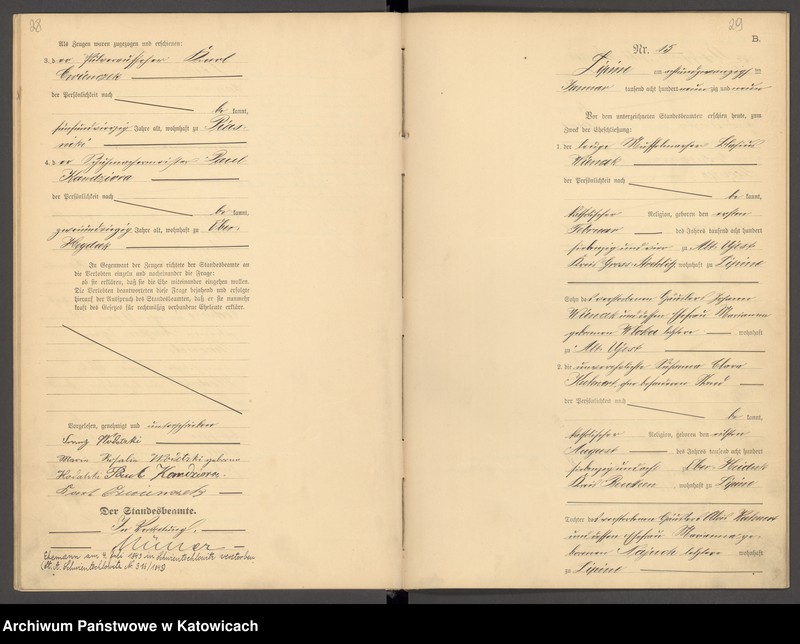 28
Als Zeugen waren zugezogen und erschienen:
3. der Karl
der Persönlichkeit nach
be kannt,
fünfundvierzig Jahre alt, wohnhaft zu Pias-
niki
4. der Schuhmachermeister Paul
Kandziora
der Persönlichkeit nach
be kannt,
zweiundvierzig Jahre alt, wohnhaft zu Ober-
Heyduk
In Gegenwart der Zeugen richtete der Standesbeamte an
die Verlobten einzeln und nacheinander die Frage:
ob sie erklären, daß sie die Ehe miteinander eingehen wollen.
Die Verlobten beantworteten diese Frage bejahend und erfolgte
hierauf der Ausspruch des Standesbeamten, daß er sie nunmehr
kraft des Gesetzes für rechtmäßig verbundene Eheleute erkläre.
Vorgelesen, genehmigt und unterschrieben
Franz
Maria Rosalie geborene
Paul Kandziora.
Karl
Der Standesbeamte.
In Vertretung.
Müller
Ehemann am 4. Juli in Schwientochlowitz verstorben
29
B.
Nr. 15
Lipine am achtundzwanzigsten
Januar tausend acht hundert neunzig und neun
Vor dem unterzeichneten Standesbeamten erschien heute, zum
Zweck der Eheschließung:
1. der ledige
der Persönlichkeit nach
be kannt,
katholischer Religion, geboren den ersten
Februar des Jahres tausend acht hundert
siebenzig und vier zu Alt-Ujest
Kreis Gross-Strehlitz, wohnhaft zu Lipine
Sohn des verstorbenen Häuslers Johann
und dessen Ehefrau Marianna
geborenen letztere wohnhaft
zu Alt-Ujest
2. die unverehelichte Susanna Clara
ohne besonderen Stand
der Persönlichkeit nach
be kannt,
katholischer Religion, geboren den elften
August des Jahres tausend acht hundert
siebenzig und acht zu Ober-Heiduk
Kreis Beuthen, wohnhaft zu Lipine
Tochter des verstorbenen Häuslers
und dessen Ehefrau Marianna ge-
borenen letztere wohnhaft
zu Lipine
Archiwum Państwowe w Katowicach